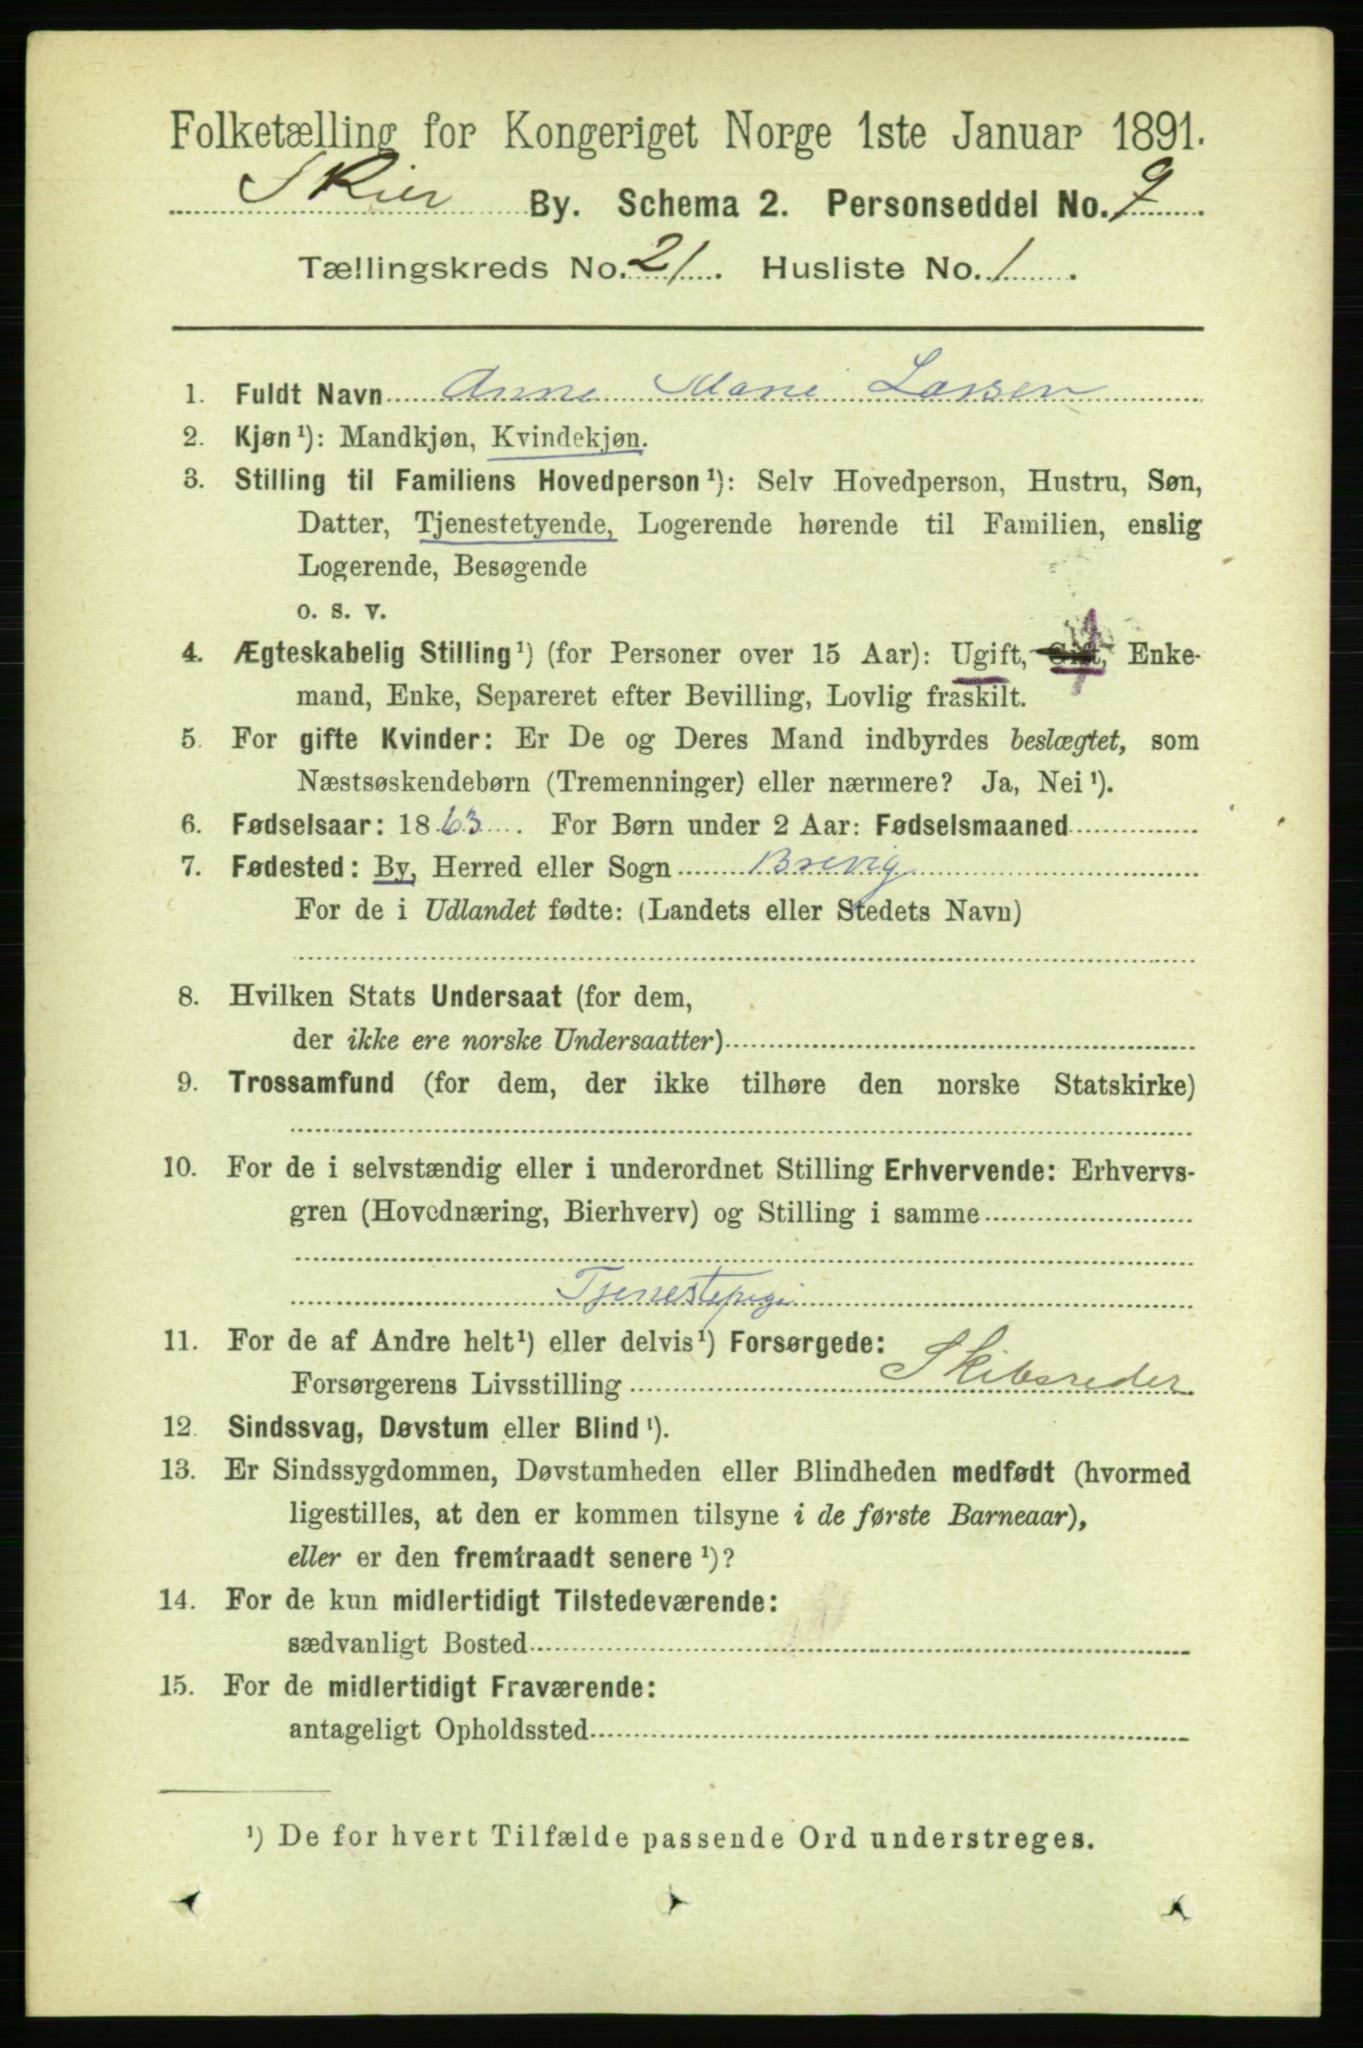 Folketælling for Kongeriget Norge 1ste Januar 1891.
Skien By. Schema 2. Personseddel No. 9
Tællingskreds No. 21. Husliste No. 1.
1. Fuldt Navn Anne Marie Larsen
2. Kjøn¹): Mandkjøn, Kvindekjøn.
3. Stilling til Familiens Hovedperson¹): Selv Hovedperson, Hustru, Søn,
Datter, Tjenestetyende, Logerende hørende til Familien, enslig
Logerende, Besøgende
o. s. v.
4. Ægteskabelig Stilling¹) (for Personer over 15 Aar): Ugift, Gift, Enke-
mand, Enke, Separeret efter Bevilling, Lovlig fraskilt.
5. For gifte Kvinder: Er De og Deres Mand indbyrdes beslægtet, som
Næstsøskendebørn (Tremenninger) eller nærmere? Ja, Nei¹).
6. Fødselsaar: 1863. For Børn under 2 Aar: Fødselsmaaned
7. Fødested: By, Herred eller Sogn Brevig
For de i Udlandet fødte: (Landets eller Stedets Navn)
8. Hvilken Stats Undersaat (for dem,
der ikke ere norske Undersaatter)
9. Trossamfund (for dem, der ikke tilhøre den norske Statskirke)
10. For de i selvstændig eller i underordnet Stilling Erhvervende: Erhvervs-
gren (Hovednæring, Bierhverv) og Stilling i samme
Tjenestepige
11. For de af Andre helt¹) eller delvis¹) Forsørgede:
Forsørgerens Livsstilling Skibsreder
12. Sindssvag, Døvstum eller Blind¹).
13. Er Sindssygdommen, Døvstumheden eller Blindheden medfødt (hvormed
ligestilles, at den er kommen tilsyne i de første Barneaar),
eller er den fremtraadt senere¹)?
14. For de kun midlertidigt Tilstedeværende:
sædvanligt Bosted
15. For de midlertidigt Fraværende:
antageligt Opholdssted
¹) De for hvert Tilfælde passende Ord understreges.